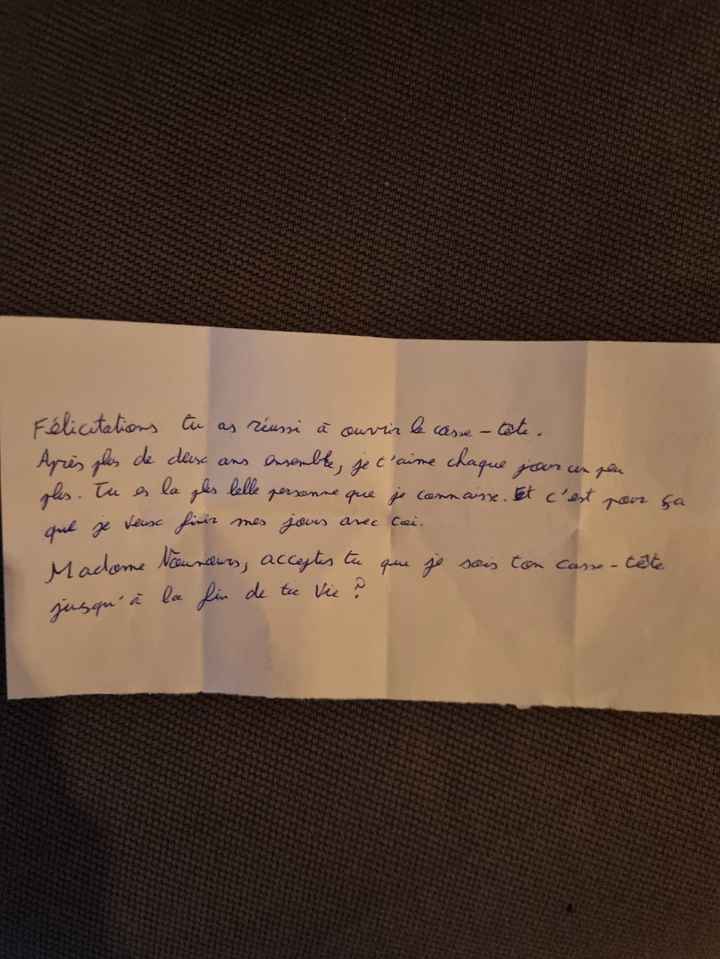 Félicitations tu as réussi à ouvrir le casse-tête.
Après plus de deux ans ensemble, je t'aime chaque jour un peu
plus. Tu es la plus belle personne que je connaisse. Et c'est pour ça
que je veux finir mes jours avec toi.
Madame Nounours, acceptes tu que je sois ton casse-tête
jusqu'à la fin de ta vie ?